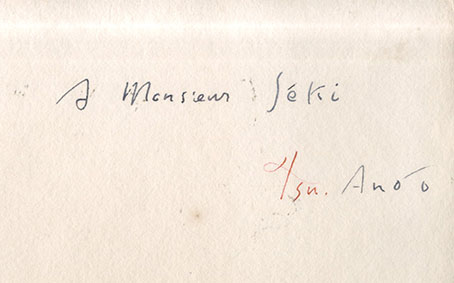 A Monsieur Séki
Tsu. Ando